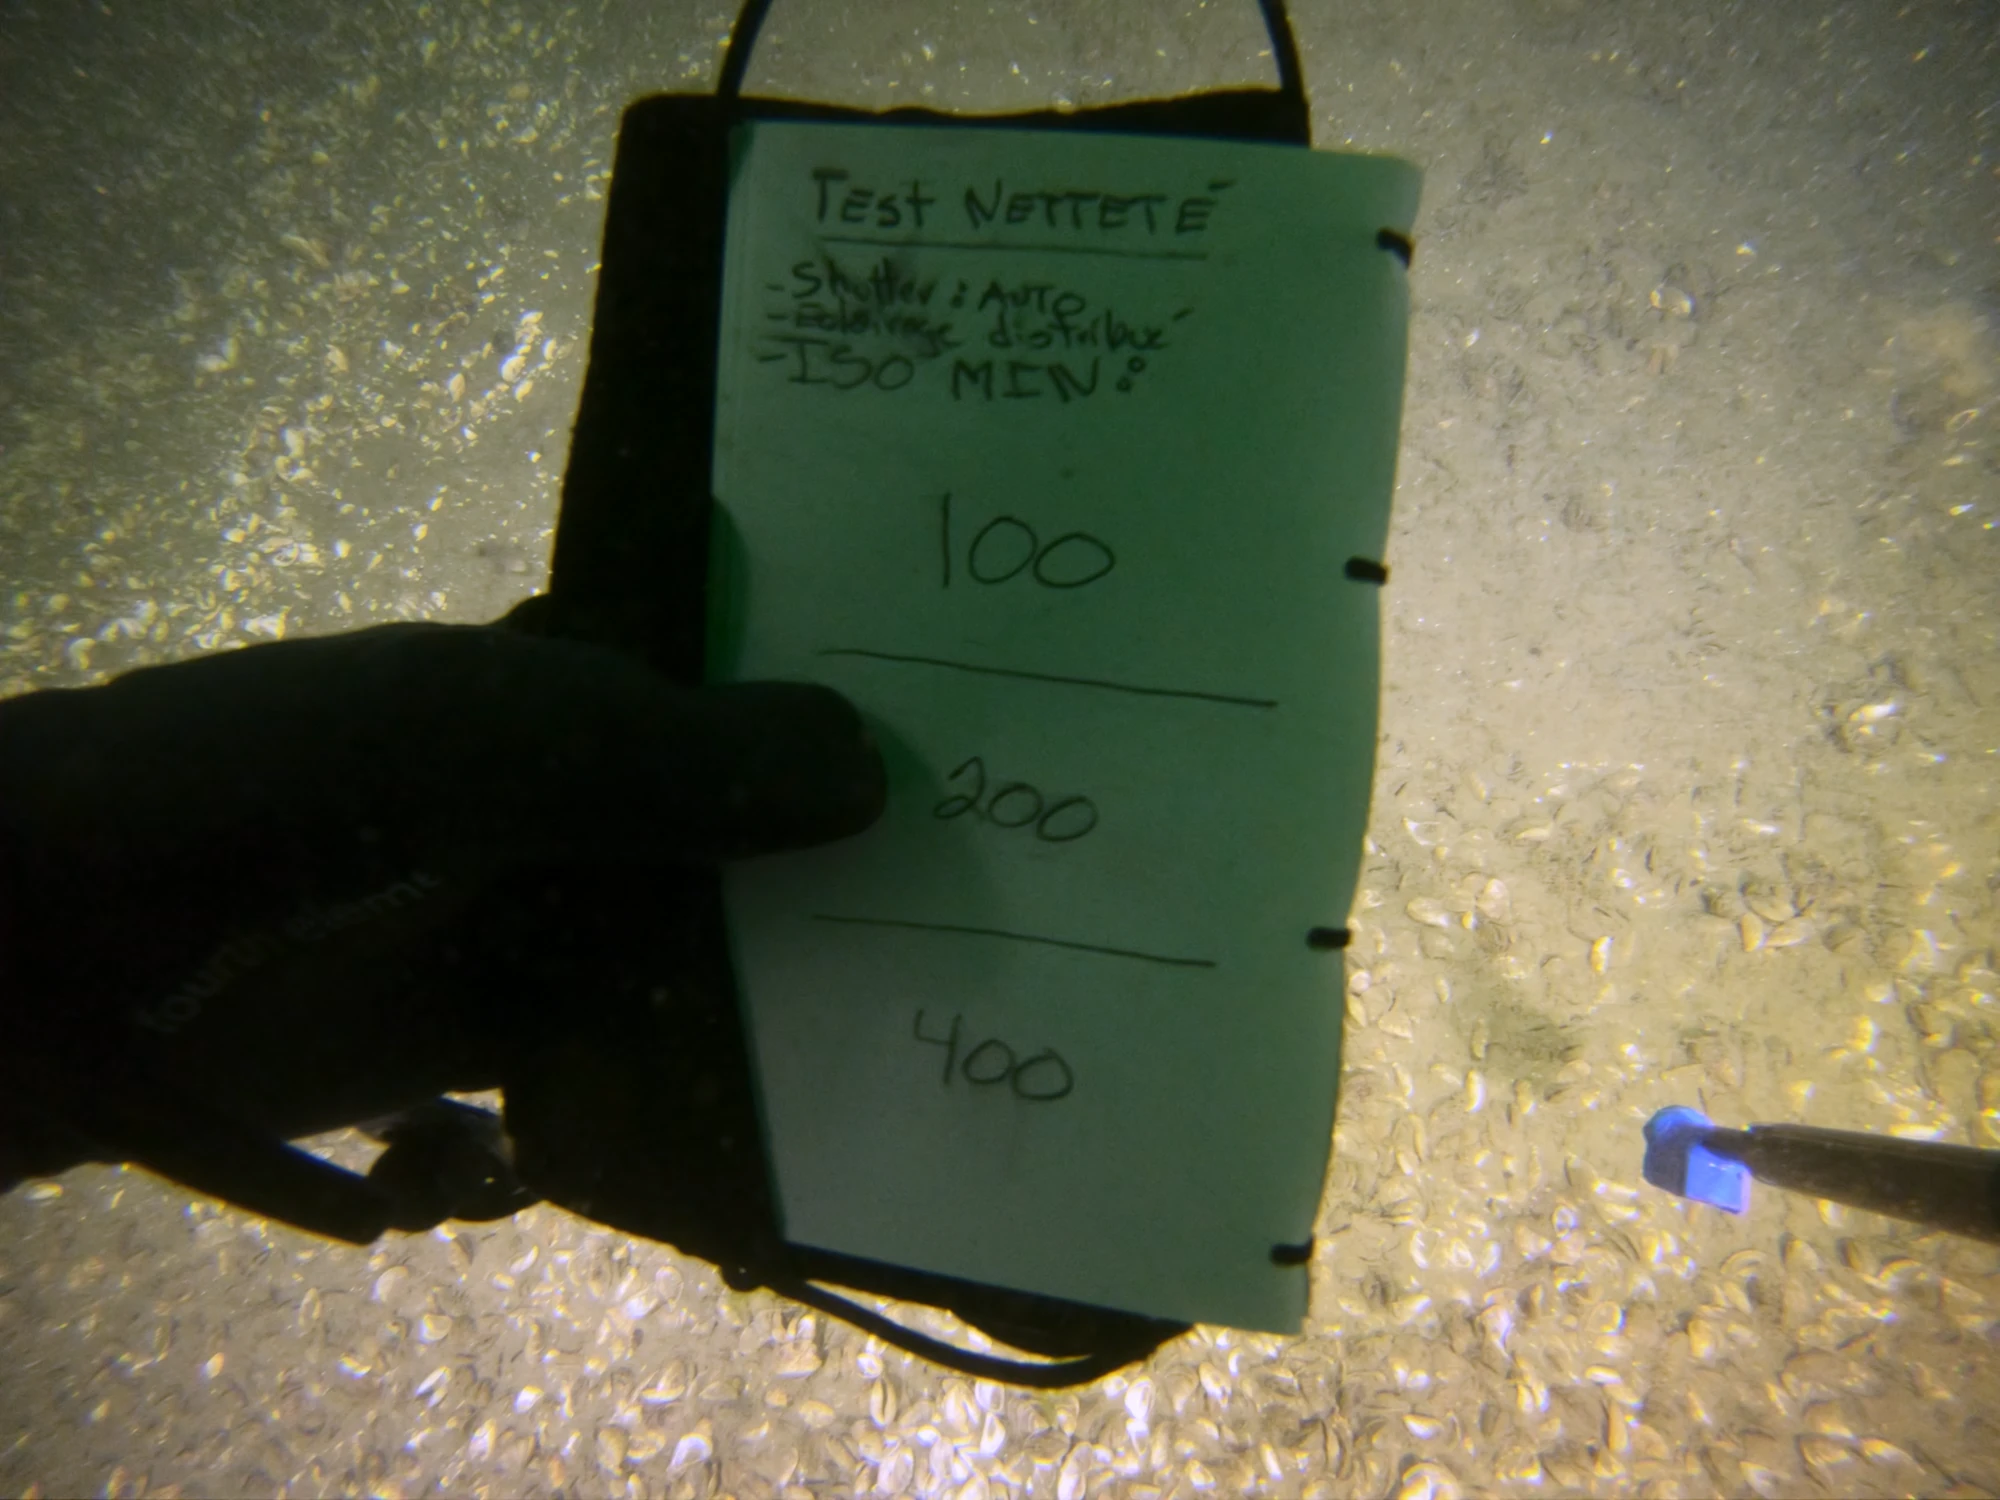 TEST NETTETÉ
- Shutter : AUTO
- Eclairage distribué
- ISO MIN :
100
200
400
fourth element